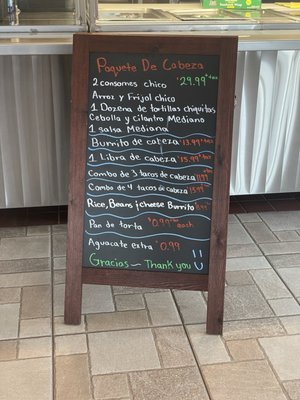 Paquete De Cabeza
2 consomes chico $29.99+tax
Arroz y Frijol chico
1 Dozena de tortillas chiquitas
Cebolla y cilantro Mediano
1 salsa Mediana
Burrito de cabeza $13.99+tax
1 Libra de cabeza $15.99+tax
Combo de 3 tacos de cabeza 11.99
Combo de 4 tacos de cabeza 15.99
Rice, Beans, cheese Burrito
Pan de torta $0.99 each
Aguacate extra $0.99
Gracias ~ Thank you